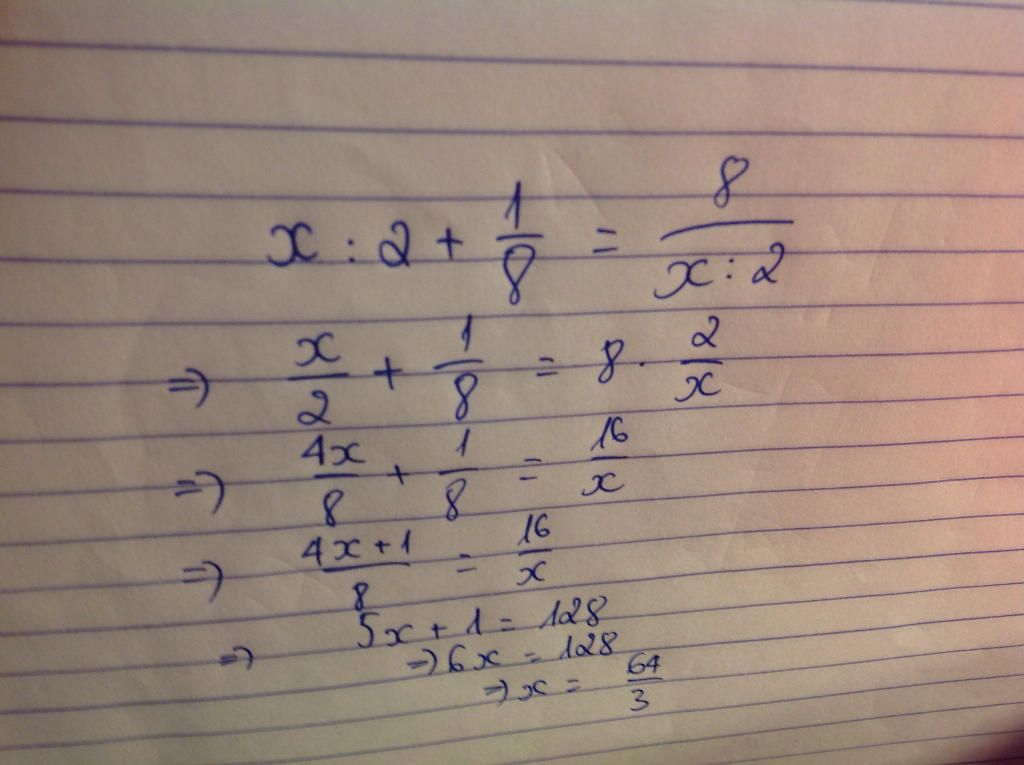 x : 2 + 1/8 = 8/(x : 2)
⇒ x/2 + 1/8 = 8 · 2/x
⇒ 4x/8 + 1/8 = 16/x
⇒ (4x + 1)/8 = 16/x
⇒ 5x + 1 = 128
⇒ 6x = 128
⇒ x = 64/3